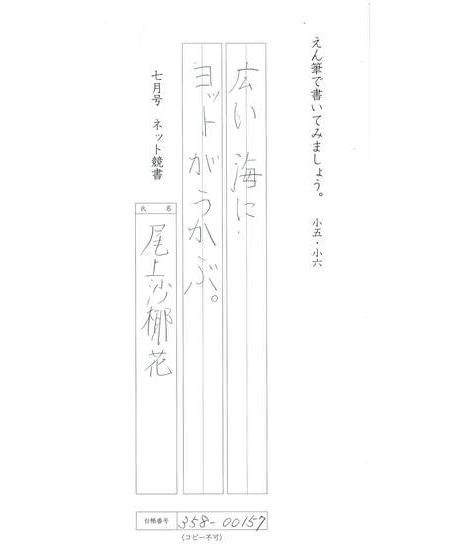 えん筆で書いてみましょう。 小五・小六
広い海に
ヨットがうかぶ。
七月号 ネット競書
氏名
尾上沙椰花
台帳番号 358-00157
(コピー不可)